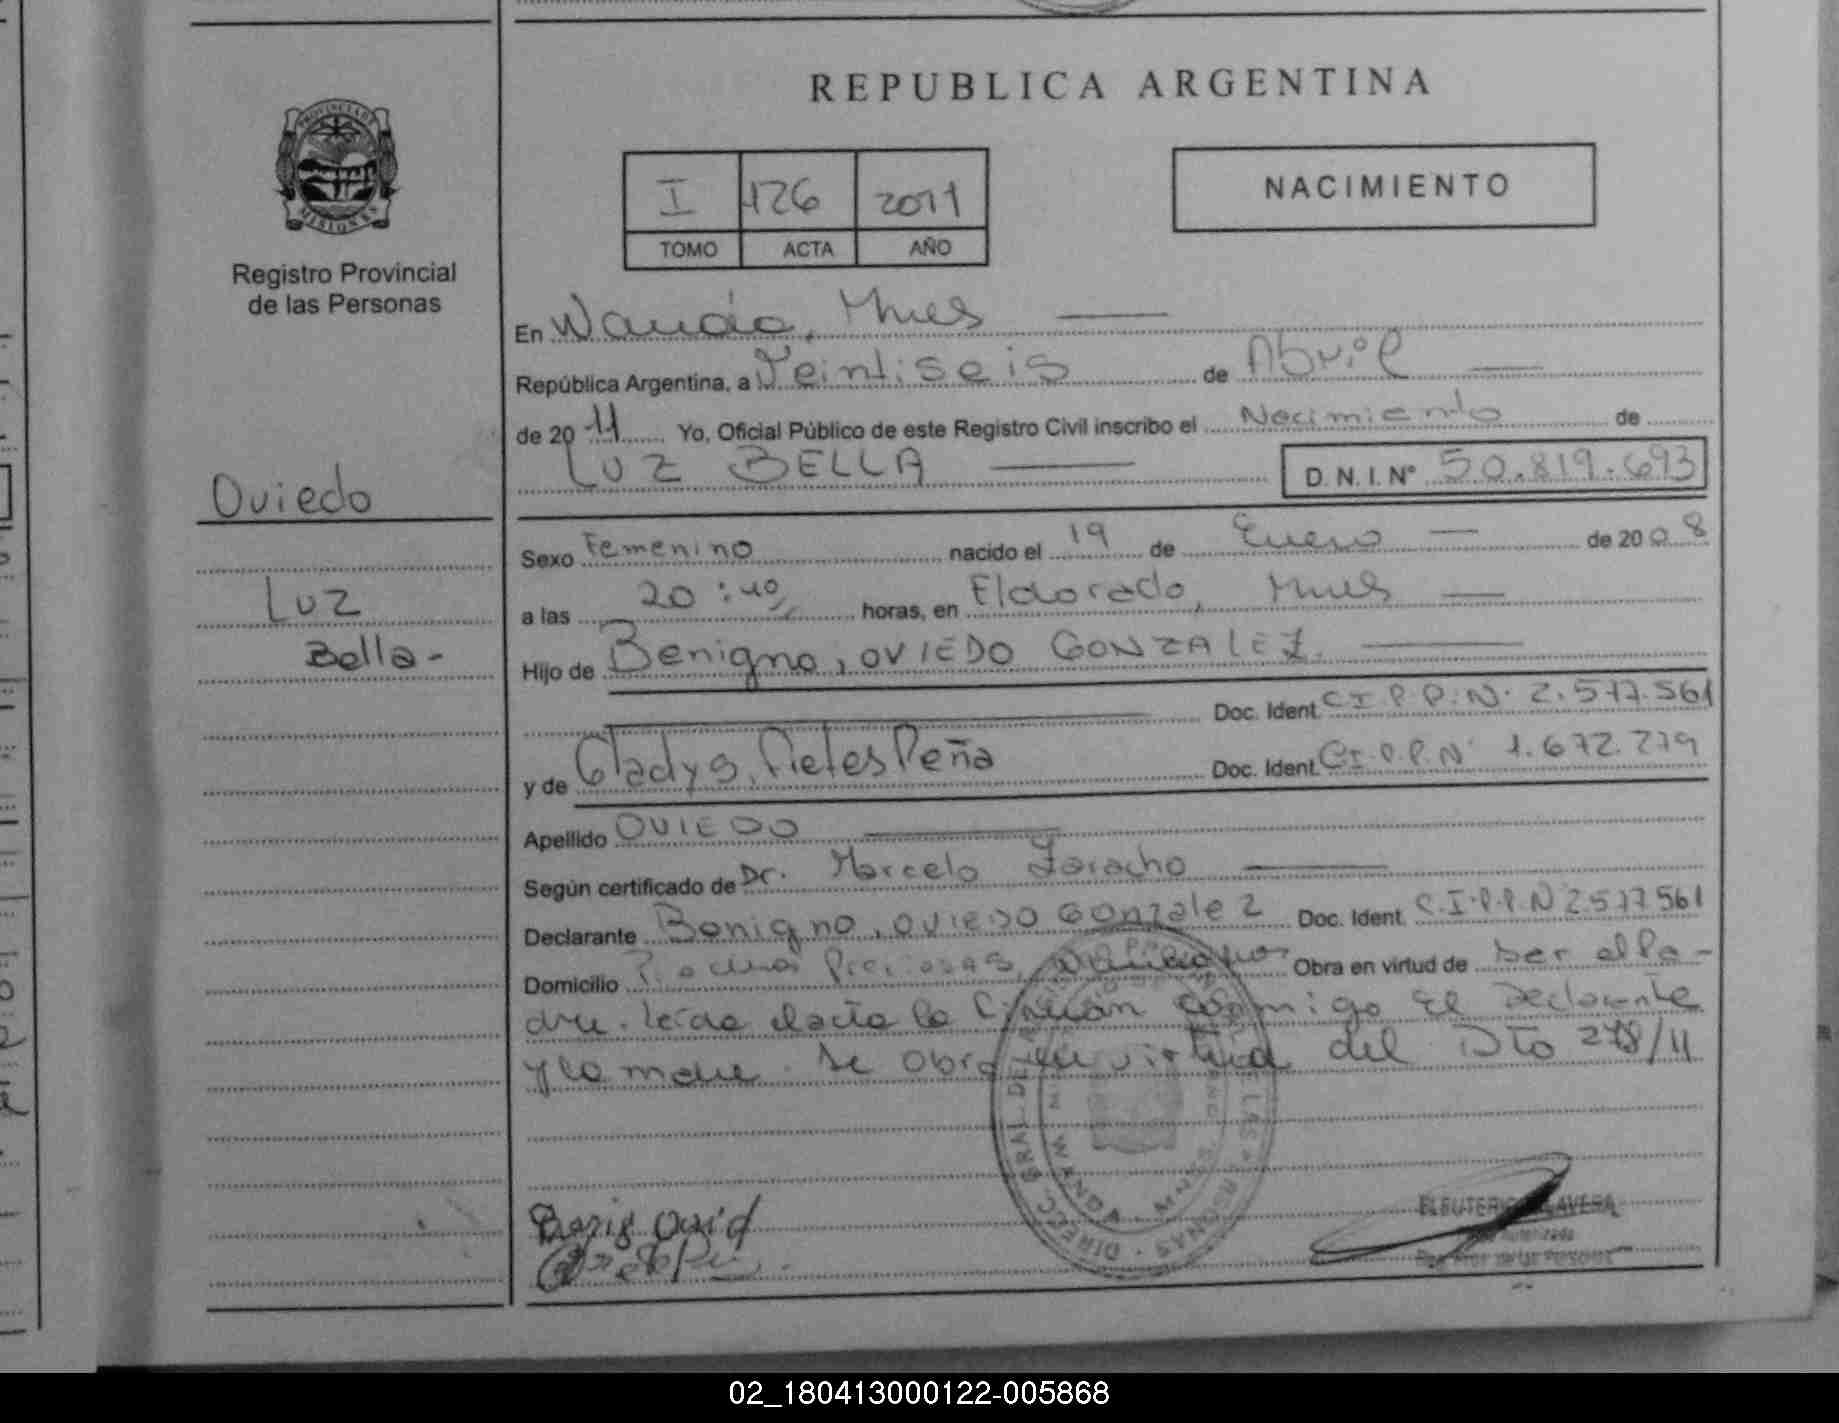 REPUBLICA ARGENTINA
PROVINCIA DE
MISIONES
Registro Provincial
de las Personas
I 126 2011
TOMO ACTA AÑO
NACIMIENTO
En Wanda, Mnes
República Argentina, a Veintiseis de Abril
de 20 11 Yo, Oficial Público de este Registro Civil inscribo el Nacimiento de
LUZ BELLA D.N.I.Nº 50.819.693
Oviedo
Luz
Bella-
Sexo Femenino nacido el 19 de Enero de 2008
a las 20:40 horas, en Eldorado, Mnes
Hijo de Benigno, OVIEDO GONZALEZ.
Doc. Ident. C.I.P.P.Nº 2.577.561
y de Gladys, Peña Doc. Ident. C.I.P.P.Nº 1.672.279
Apellido OVIEDO
Según certificado de Dr. Marcelo Zaracho
Declarante Benigno, OVIEDO Gonzalez Doc. Ident. C.I.P.P.N 2.577.561
Domicilio Piedras Preciosas, Obra en virtud de ser el Pa-
dre. Leída el acta la firman conmigo El Declarante
y la madre. Se obra en virtud del Dto 278/11
Benig Ovid
ELEUTERIO
02_180413000122-005868